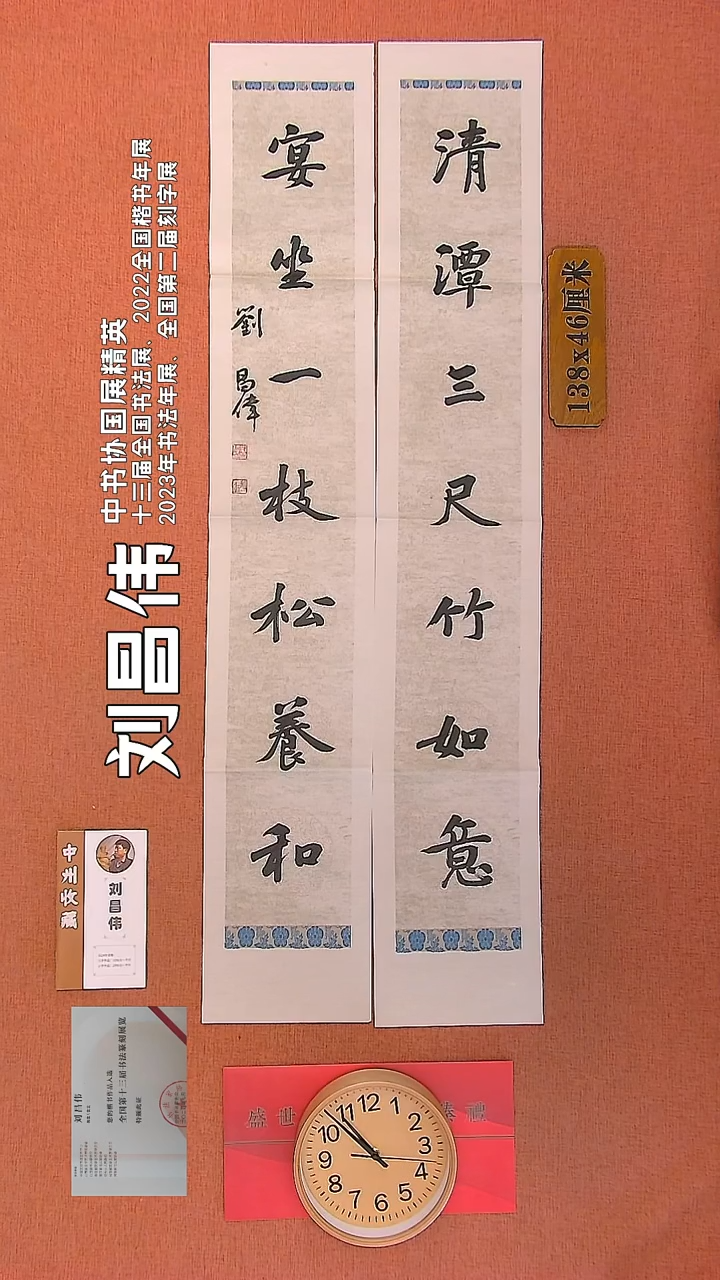 清潭三尺竹如意
宴坐一枝松養和
劉昌偉
138x46厘米
刘昌伟
中书协国展精英
十三届全国书法展、2022全国楷书年展
2023年书法年展、全国第二届刻字展
刘昌伟
刘昌伟
您的楷书作品入选
全国第十三届书法篆刻展览
特颁此证
盛世
禮
12
1
2
3
4
5
6
7
8
9
10
11